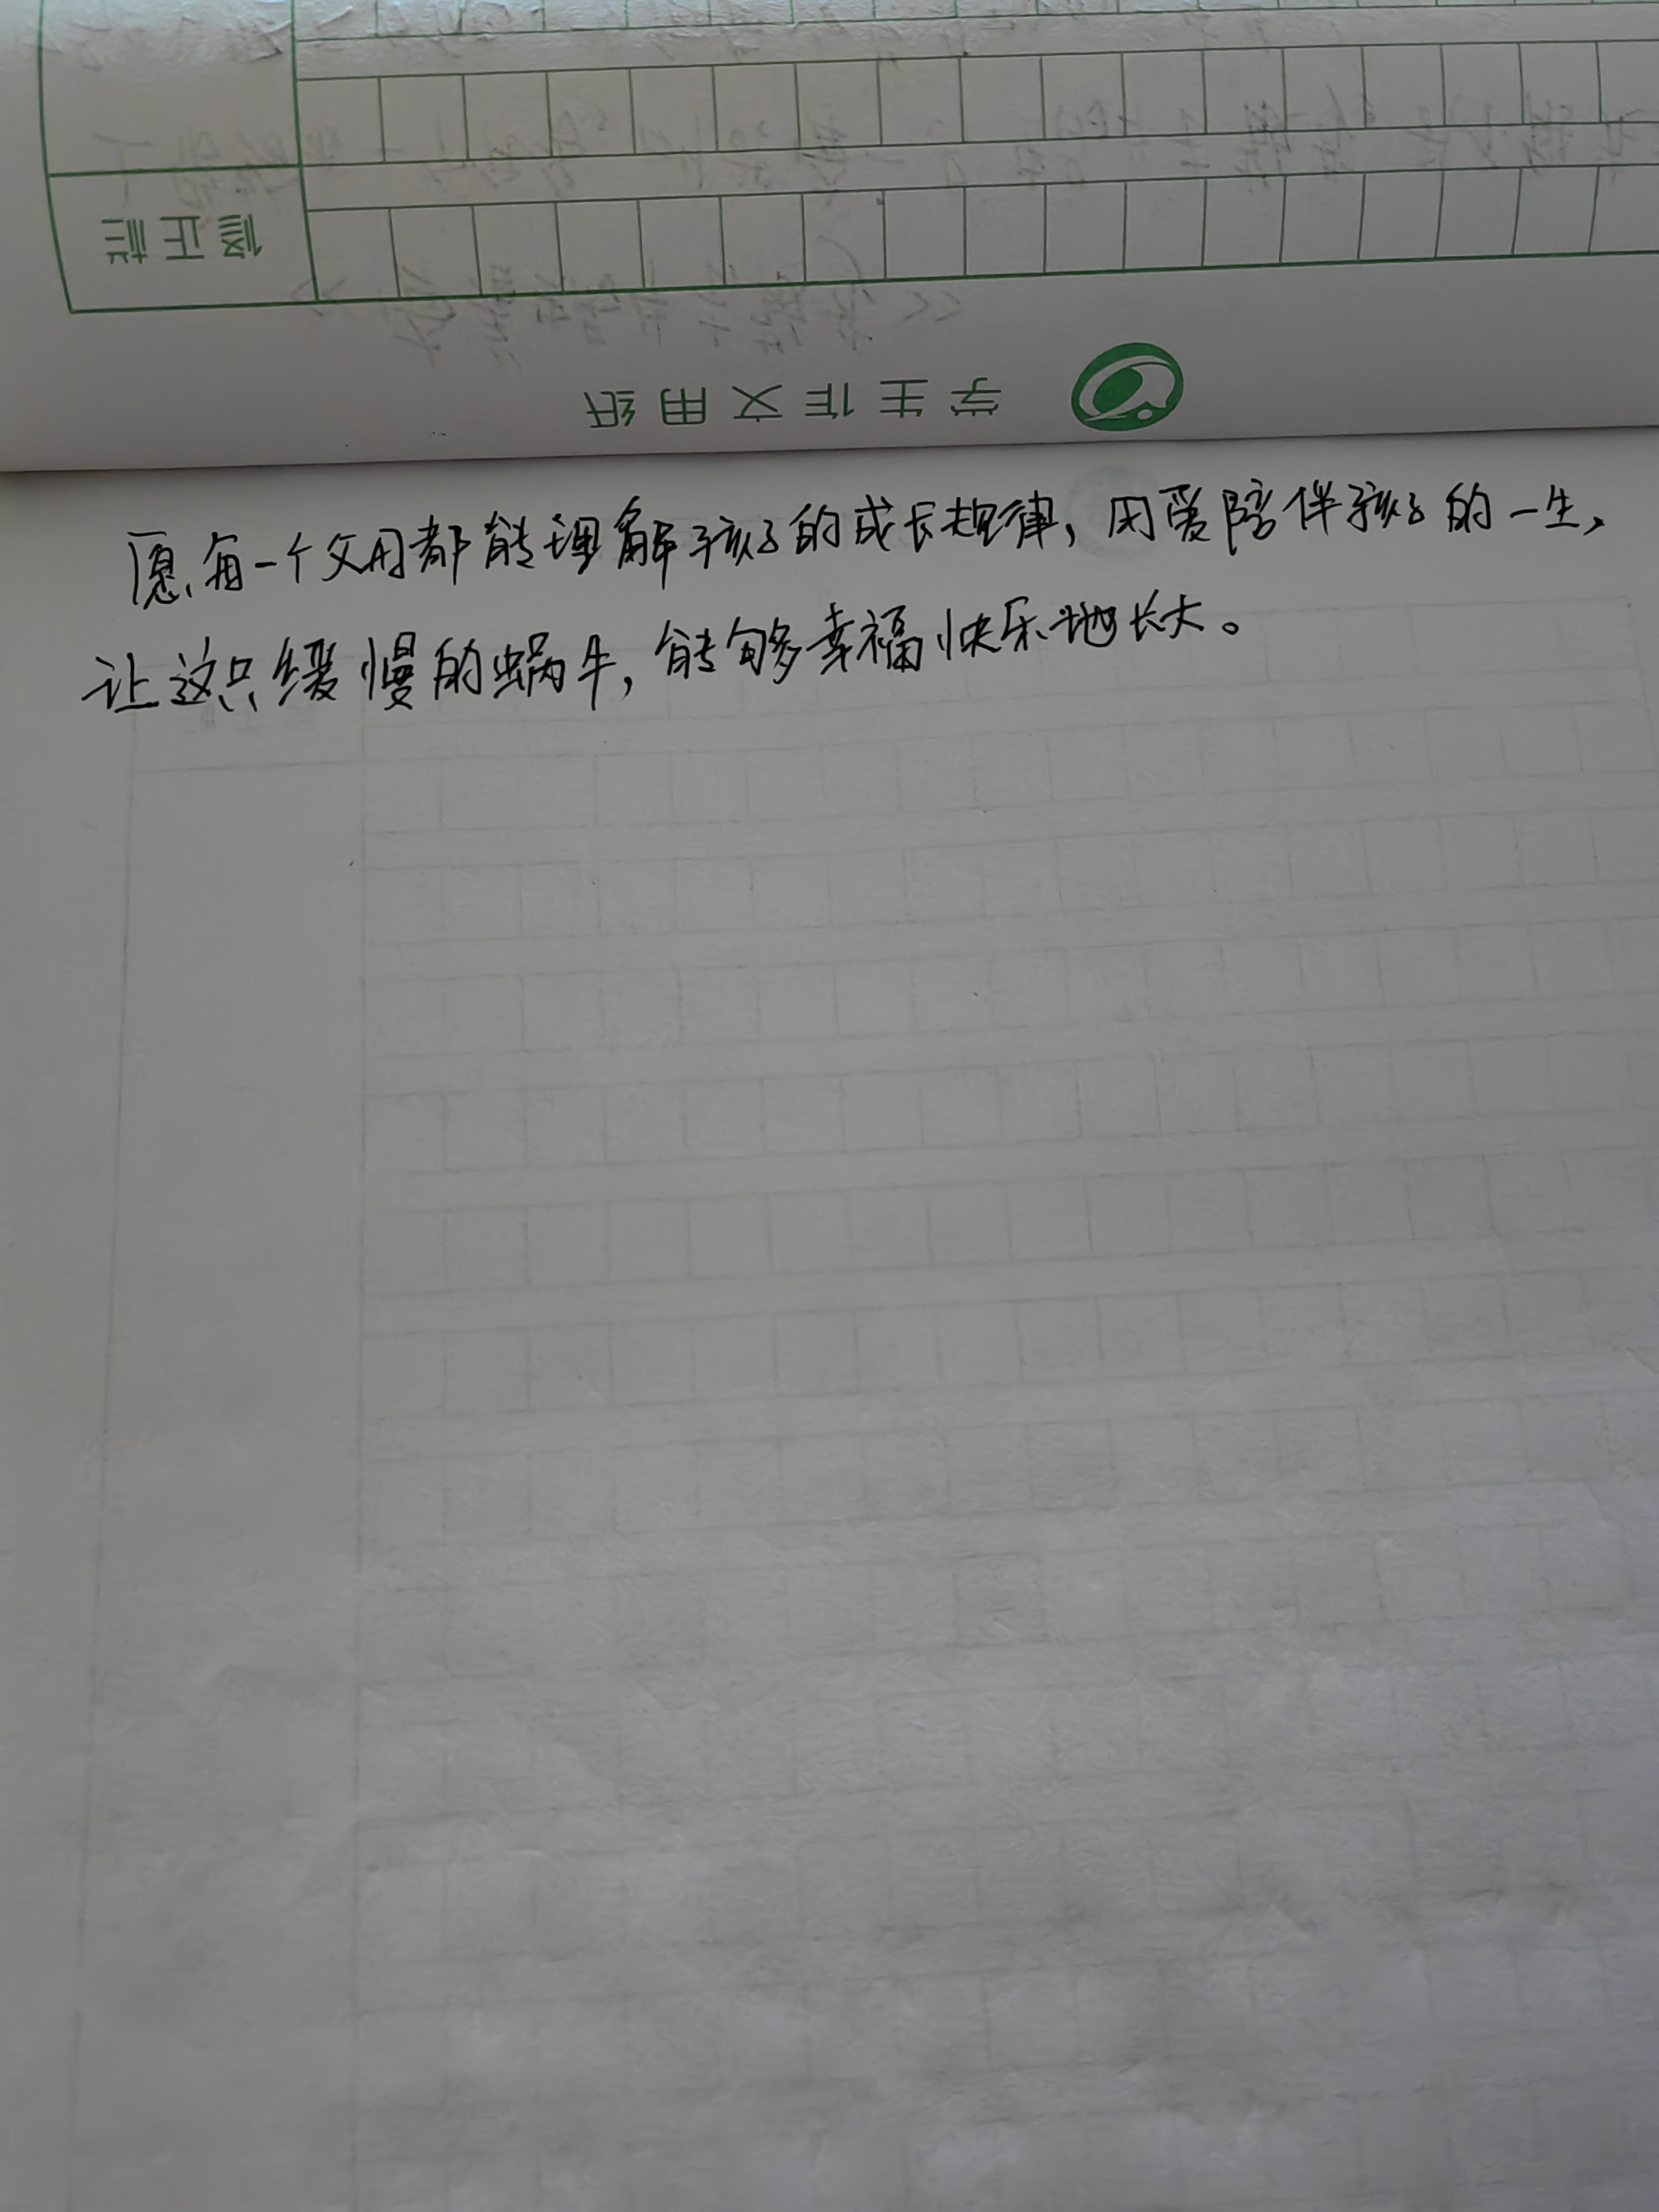 修正栏
学生作文用纸
愿每一个父母都能理解孩子的成长规律，用爱陪伴孩子的一生，
让这只缓慢的蜗牛，能够幸福快乐地长大。